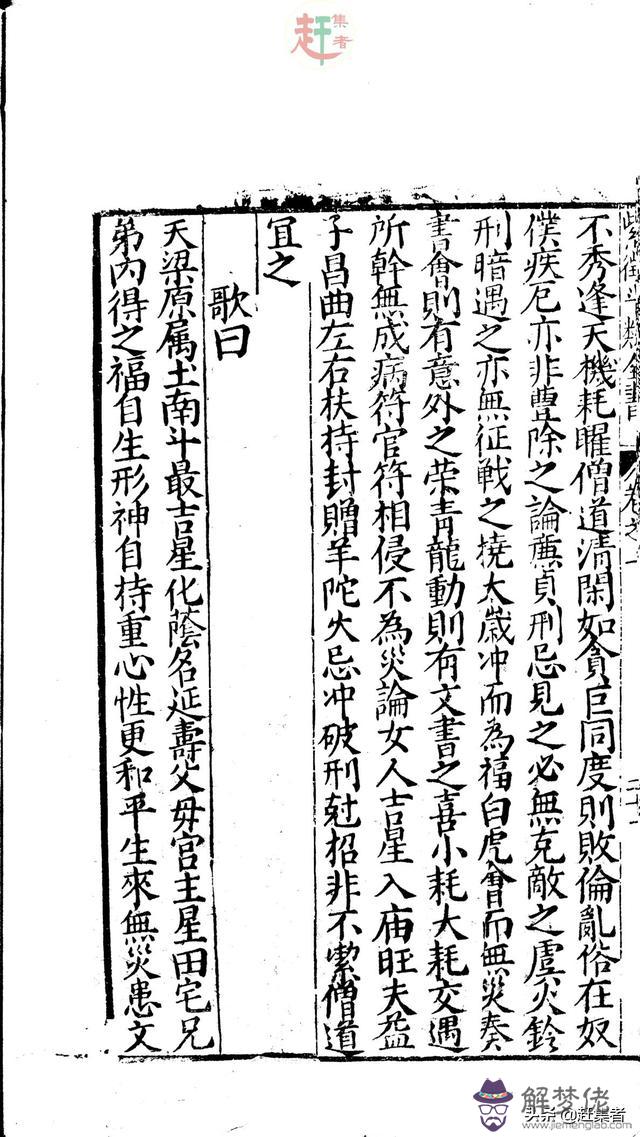 赶集者
不秀逢天機耗曜僧道清閑如貪巨同度則敗倫亂俗在奴
僕疾厄亦非豊除之論廉貞刑忌見之必無克敵之虞火鈴
刑暗遇之亦無征戦之撓太歲冲而為福白虎會而無災奏
書會則有意外之荣青龍動則有文書之喜小耗大耗交遇
所幹無成病符官符相侵不為災論女人吉星入庙旺夫益
子昌曲左右扶持封贈羊陀火忌冲破刑尅招非不潔僧道
宜之
歌曰
天梁原属土南斗最吉星化蔭名延壽父毋宮主星田宅兄
弟内得之福自生形神自持重心性更和平生來無災患文
解梦佬
www.jiemenglao.com
头条@赶集者